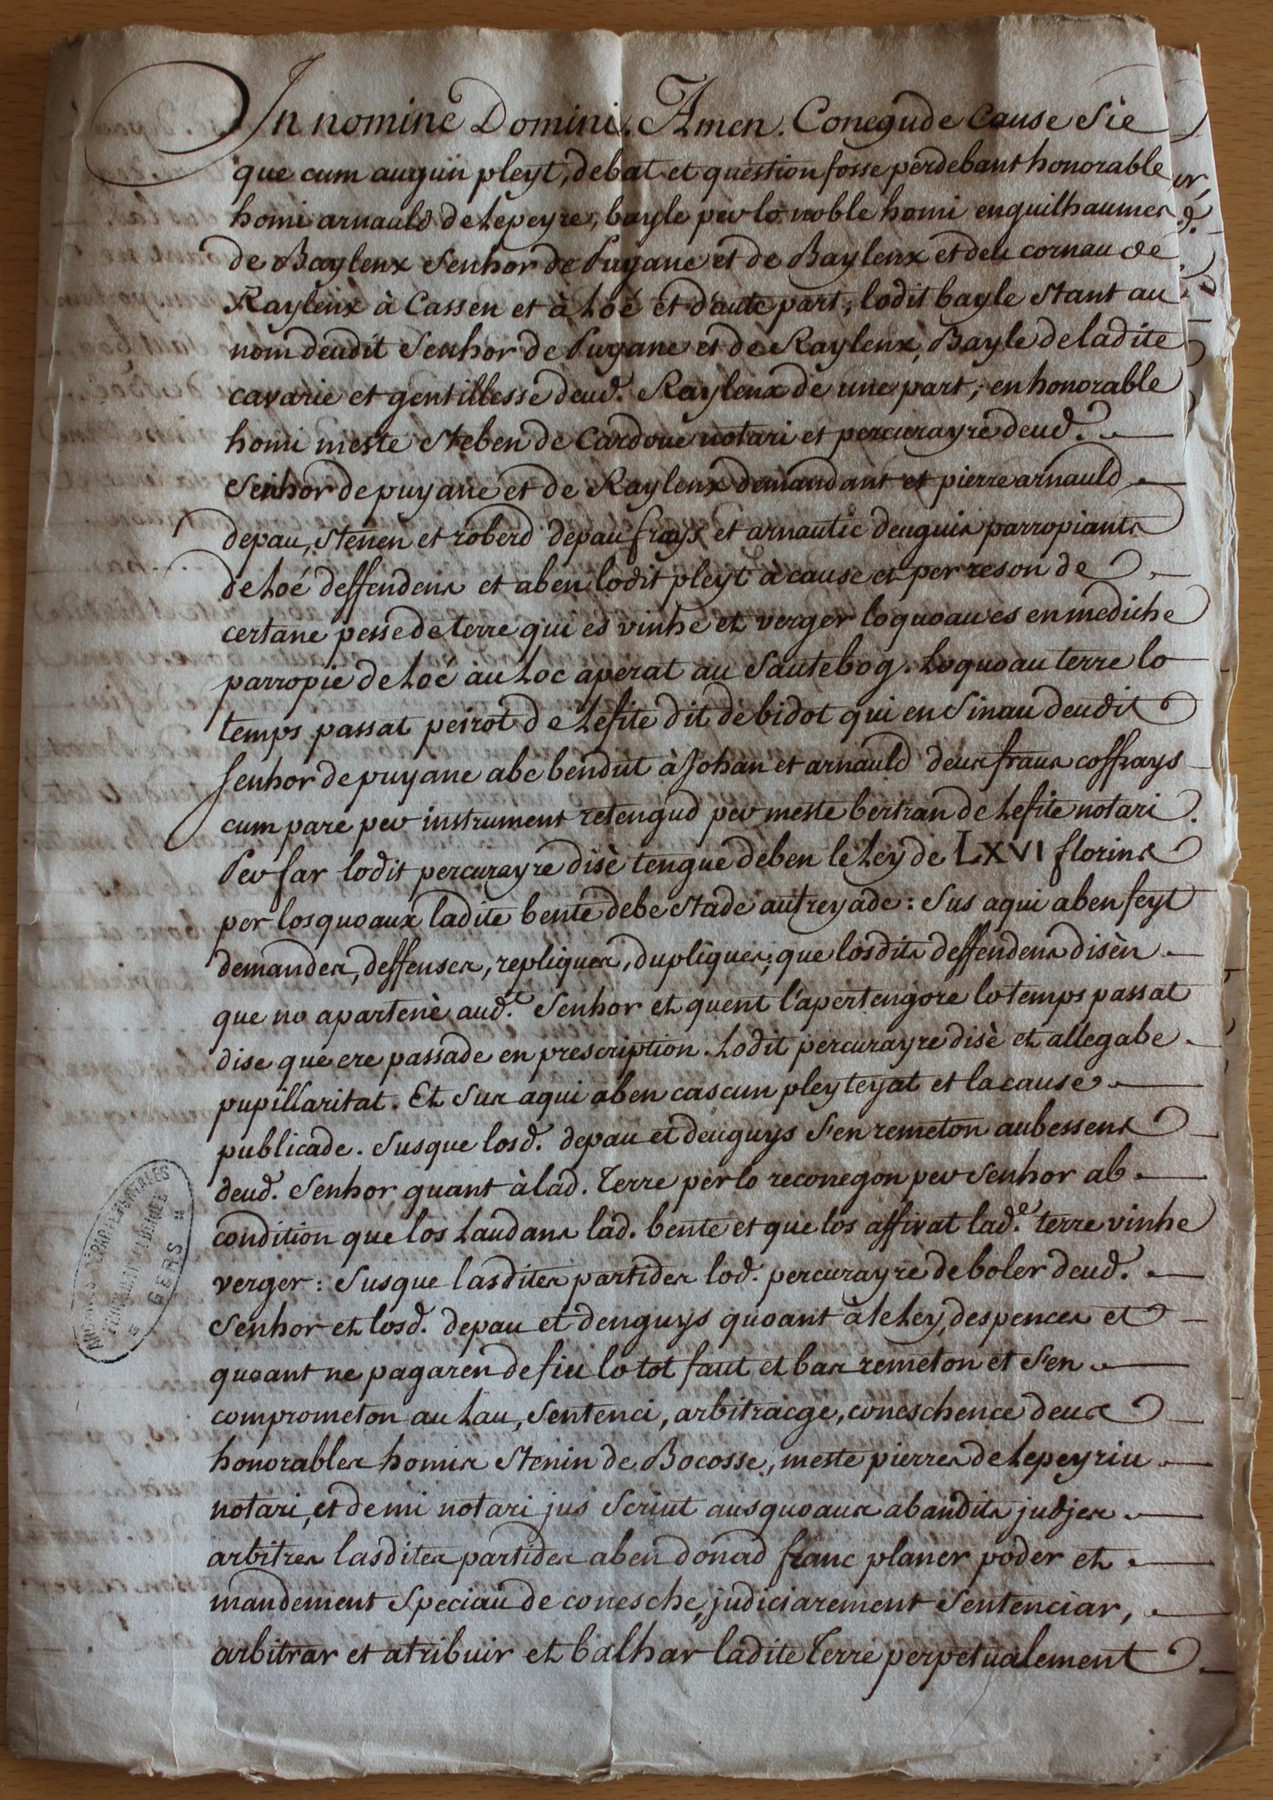 In nomine Domini. Amen. Conegude cause sie
que cum auguñ pleyt, debat et question fosse perdebant honorable
homi arnauld de Lepeyre, bayle per lo noble homi enguilhaumes
de Baylenx Senhor de Puyane et de Baylenx et deu cornau de
Raylenx à Cassen et à Loé et d'aute part, lodit bayle stant au
nom deudit Senhor de Puyane et de Raylenx, Bayle de ladite
cavarie et gentillesse deud. Raylenx de une part, en honorable
homi meste steben de Cardoue notari et percurayre deud.
Senhor de puyane et de Raylenx demandant et pierre arnauld
depau, stenen et roberd depau frays et arnautic deuguis parropiants
de Loé deffendens et aben lodit pleyt à cause et per reson de
certane pesse de terre qui es vinhe et verger loquoau es en mediche
parropie de Loé au Loc aperat au Sautebog. Loquoau terre lo
temps passat peirot de Lefite dit de bidot qui en sinau deudit
senhor de puyane abe bendut à Johan et arnauld deus fraus coffrays
cum pare per instrument retengud per meste bertran de Lefite notari.
Per far lodit percurayre disè tengue deben le Ley de LXVI florins
per losquoaux ladite bente debe stade autreyade: Sus aqui aben feyt
demandes, deffenses, repliques, dupliques, que losdits deffendens disèn
que no apartenè aud.t Senhor et quent l'apertengore lo temps passat
dise que ere passade en prescription. Lodit percurayre disè et allegabe
pupillaritat. Et sus aqui aben cascun pleyteyat et la cause
publicade. Susque losd. depau et deuguys s'en remeton aubessens
deud. Senhor quant à lad. Terre per lo reconegon per Senhor ab
condition que los Laudans lad. bente et que los affivat lad.e terre vinhe
verger: Susque lasdites partides lod. percurayre de boler deud.
Senhor et losd. depau et deuguys quoant à le Ley, despences et
quoant ne pagaren de fiu lo tot faut et bas remeton et s'en
comprometon au Lau, sentenci, arbitracge, coneschence deus
honorables homis stenin de Bocosse, meste pierres de Lepeyriu
notari, et de mi notari jus scriut ausquoaus abandits judjes
arbitres lasdites partides aben donad franc planer poder et
mandement speciau de conesche, judiciarement sentenciar,
arbitrar et atribuir et balhar ladite Terre perpetualement
ARCHIVES DÉPARTEMENTALES
GERS